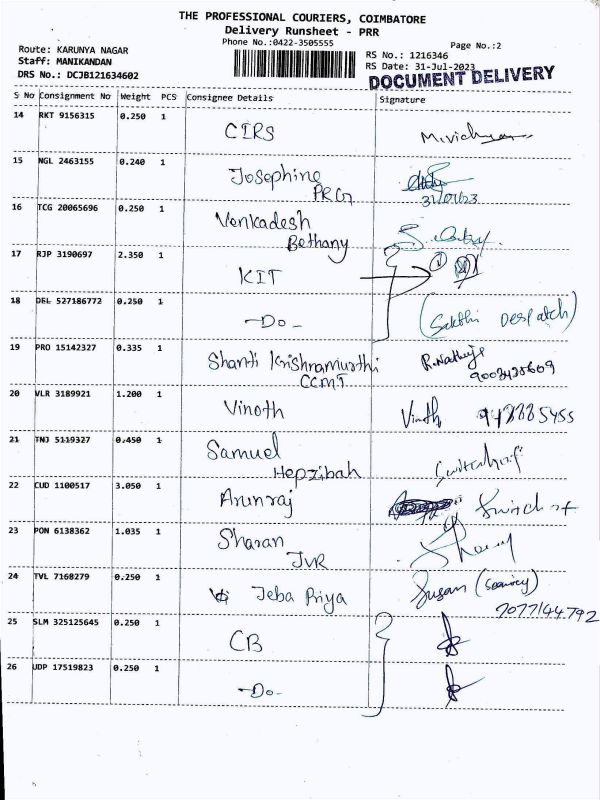 THE PROFESSIONAL COURIERS, COIMBATORE
Delivery Runsheet - PRR
Phone No.:0422-3505555
Page No.:2
Route: KARUNYA NAGAR
Staff: MANIKANDAN
DRS No.: DCJB121634602
RS No.: 1216346
RS Date: 31-Jul-2023
DOCUMENT DELIVERY
S No Consignment No Weight PCS Consignee Details Signature
14 RKT 9156315 0.250 1 CIRS
15 NGL 2463155 0.240 1 Josephine
PRG 31/07/23
16 TCG 20065696 0.250 1 Venkadesh
Bethany
17 RJP 3190697 2.350 1 KIT
18 DEL 527186772 0.250 1 -Do- (Sakthi Despatch)
19 PRO 15142327 0.335 1 Shanti Krishnamurthi
CCMT
20 VLR 3189921 1.200 1 Vinoth Vinoth
21 TNJ 5119327 0.450 1 Samuel
Hepzibah
22 CUD 1100517 3.050 1 Arunraj
23 PON 6138362 1.035 1 Sharan
JVR
24 TVL 7168279 0.250 1 Jeba Priya Susan
7077144792
25 SLM 325125645 0.250 1 CB
26 UDP 17519823 0.250 1 -Do-